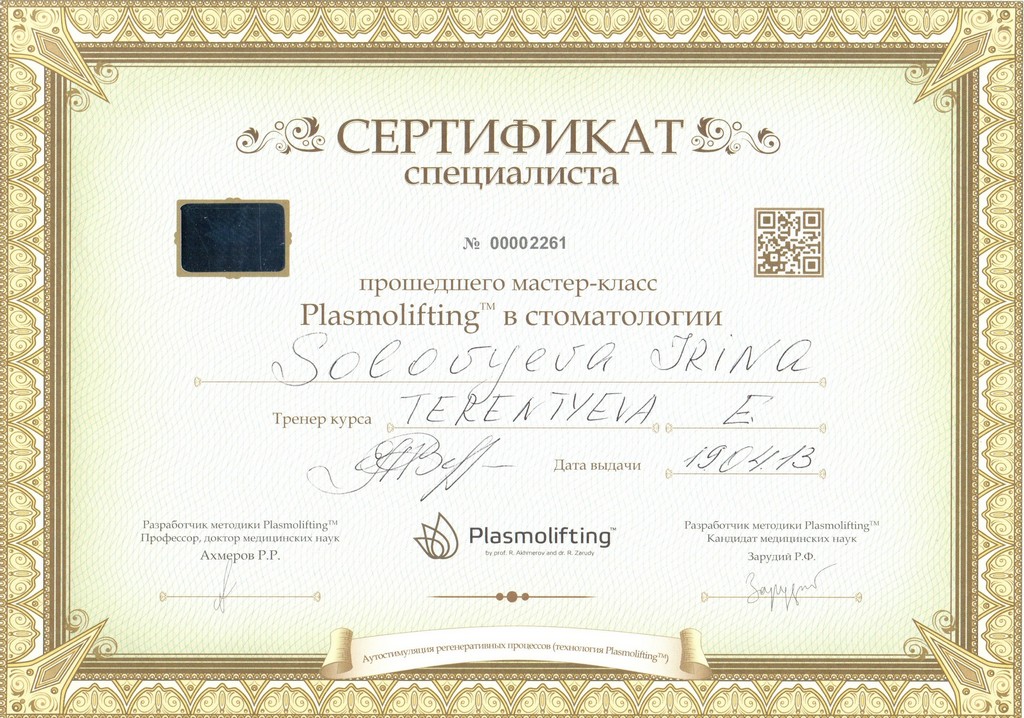 СЕРТИФИКАТ
специалиста
№ 00002261
прошедшего мастер-класс
Plasmolifting™ в стоматологии
Solovyeva IRINA
Тренер курса TERENTYEVA E.
Дата выдачи 190413
Разработчик методики Plasmolifting™
Профессор, доктор медицинских наук
Ахмеров Р.Р.
Plasmolifting™
by prof. R. Akhmerov and dr. R. Zarudy
Разработчик методики Plasmolifting™
Кандидат медицинских наук
Зарудий Р.Ф.
Аутостимуляция регенеративных процессов (технология Plasmolifting™)